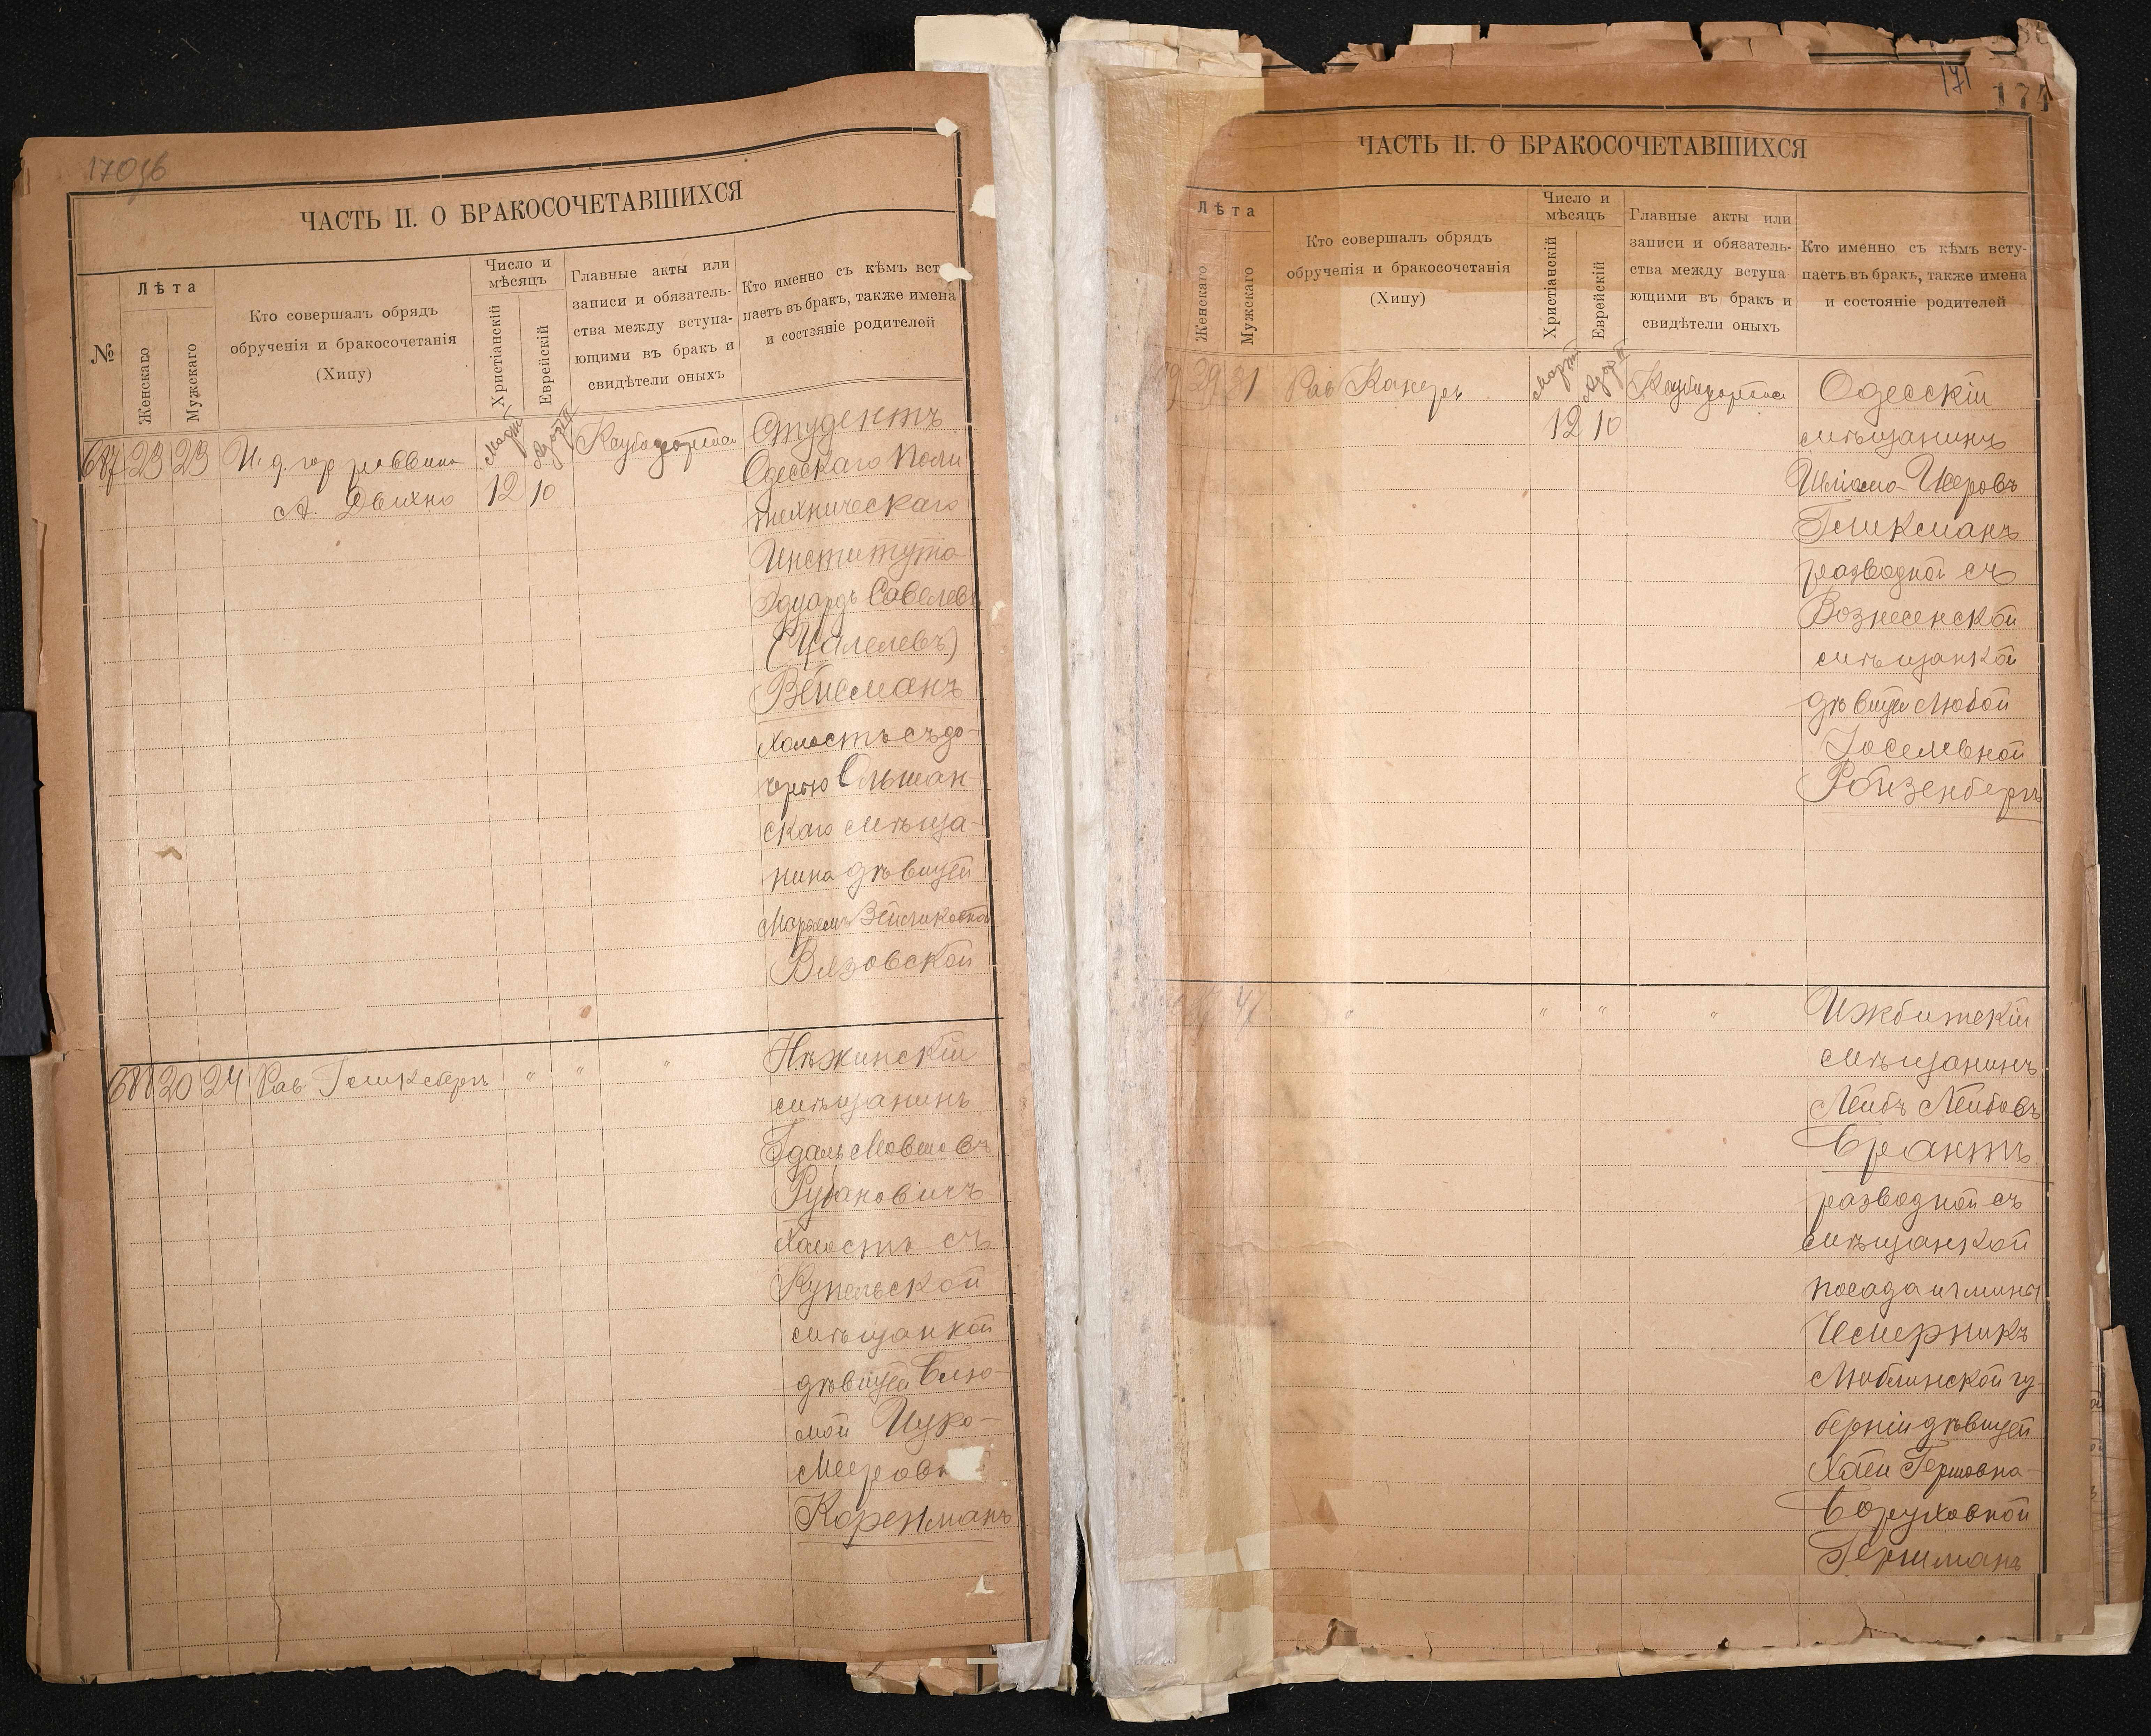 ЧАСТЬ II. О БРАКОСОЧЕТАВШИХСЯ
№
Лѣта
Женскаго
Мужскаго
Кто совершалъ обрядъ
обрученія и бракосочетанія
(Хипу)
Число и
мѣсяцъ
Христіанскій
Еврейскій
Главные акты или
записи и обязатель-
ства между вступа-
ющими въ бракъ и
свидѣтели оныхъ
Кто именно съ кѣмъ вст
паетъ въ бракъ, также имена
и состояніе родителей
687 23 23
И. д. гор раввина
А. Двихно
Мартъ
12
10
Студентъ
Одесскаго Поли
техническаго
Института
Эдуардъ Савелевъ
(Цалелевъ)
Вейсманъ
холостъ съ до-
черью Ольшан-
скаго мѣща-
нина дѣвицей
Вязовской
688 20 24
Рав Гликсбергъ
" " "
Нѣжинскій
мѣщанинъ
Гдаль Мовшовъ
Рубановичъ
холостъ съ
Купельской
мѣщанкой
дѣвицей Блю-
мой Цуро-
Мееровн
Коренманъ
171
174
ЧАСТЬ II. О БРАКОСОЧЕТАВШИХСЯ
Лѣта
Женскаго
Мужскаго
Кто совершалъ обрядъ
обрученія и бракосочетанія
(Хипу)
Число и
мѣсяцъ
Христіанскій
Еврейскій
Главные акты или
записи и обязатель-
ства между вступа
ющими въ бракъ и
свидѣтели оныхъ
Кто именно съ кѣмъ всту-
паетъ въ бракъ, также имена
и состояніе родителей
Рав Канеръ
Мартъ
12
10
Одесскій
мѣщанинъ
Шліома Исеровъ
Гликсманъ
разводной съ
Вознесенской
мѣщанкой
дѣвицей Любой
Іоселевной
Ройзенбергъ
47
" " " "
Ижбитскій
мѣщанинъ
Лейбъ Лейбовъ
Брантъ
разводной съ
мѣщанкой
посада и гмины
Чемерникъ
Люблинской гу-
берніи дѣвицей
Хаей Гершовна-
Боруховной
Герцманъ